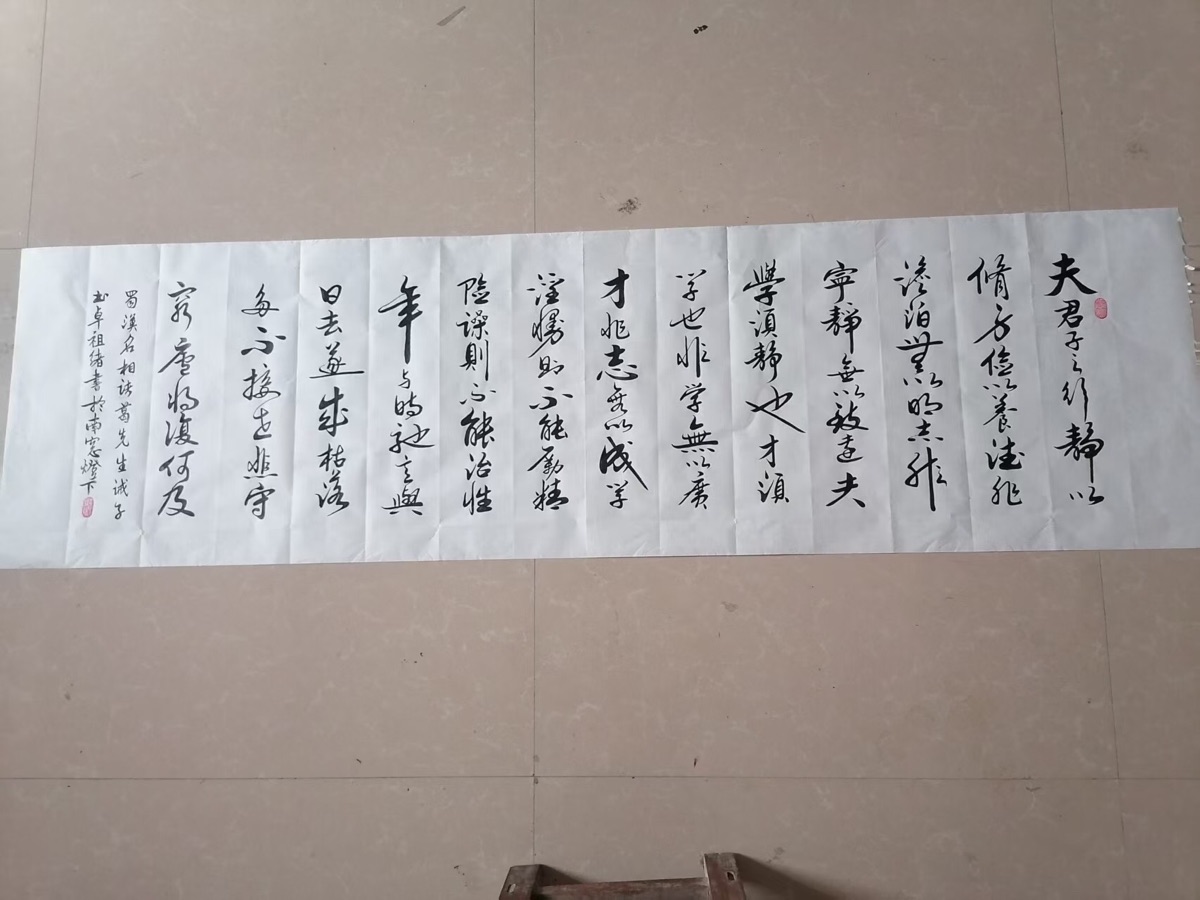 夫君子之行靜以
脩身儉以養德非
澹泊無以明志非
寧靜無以致遠夫
學須靜也才須
学也非学無以廣
才非志無以成学
淫慢則不能勵精
险躁則不能治性
年与時馳意與
日去遂成枯落
多不接世悲守
窮廬将復何及
蜀漢名相諸葛先生诫子
书卓祖绪書於南窓燈下